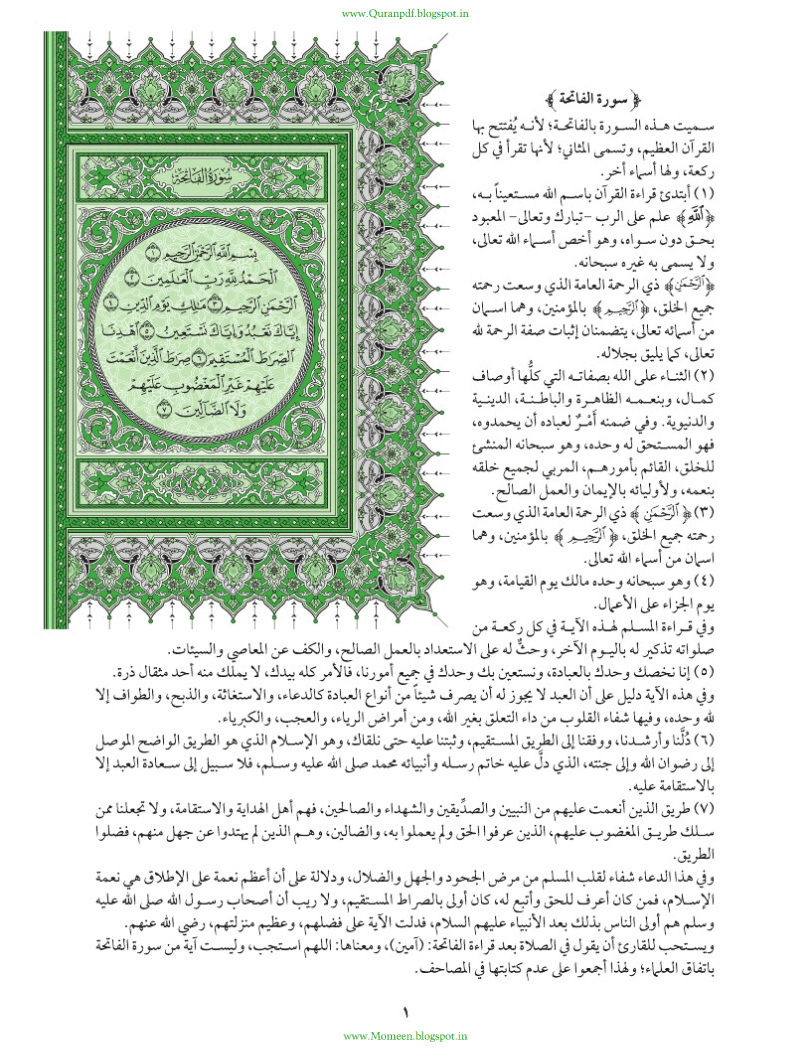 www.Quranpdf.blogspot.in
﴿ سورة الفاتحة ﴾
سميت هذه السورة بالفاتحة؛ لأنه يُفتتح بها
القرآن العظيم، وتسمى المثاني؛ لأنها تقرأ في كل
ركعة، ولها أسماء أخر.
(١) أبتدئ قراءة القرآن باسم الله مستعيناً به،
﴿ٱللَّهِ﴾ علم على الرب -تبارك وتعالى- المعبود
بحق دون سواه، وهو أخص أسماء الله تعالى،
ولا يسمى به غيره سبحانه.
﴿ٱلرَّحْمَٰنِ﴾ ذي الرحمة العامة الذي وسعت رحمته
جميع الخلق، ﴿ٱلرَّحِيمِ﴾ بالمؤمنين، وهما اسمان
من أسمائه تعالى، يتضمنان إثبات صفة الرحمة لله
تعالى، كما يليق بجلاله.
(٢) الثناء على الله بصفاته التي كلُّها أوصاف
كمال، وبنعمه الظاهرة والباطنة، الدينية
والدنيوية. وفي ضمنه أَمْرٌ لعباده أن يحمدوه،
فهو المستحق له وحده، وهو سبحانه المنشئ
للخلق، القائم بأمورهم، المربي لجميع خلقه
بنعمه، ولأوليائه بالإيمان والعمل الصالح.
(٣) ﴿ ٱلرَّحْمَٰنِ ﴾ ذي الرحمة العامة الذي وسعت
رحمته جميع الخلق، ﴿ ٱلرَّحِيمِ ﴾ بالمؤمنين، وهما
اسمان من أسماء الله تعالى.
(٤) وهو سبحانه وحده مالك يوم القيامة، وهو
يوم الجزاء على الأعمال.
وفي قراءة المسلم لهذه الآية في كل ركعة من
صلواته تذكير له باليوم الآخر، وحثٌّ له على الاستعداد بالعمل الصالح، والكف عن المعاصي والسيئات.
(٥) إنا نخصك وحدك بالعبادة، ونستعين بك وحدك في جميع أمورنا، فالأمر كله بيدك، لا يملك منه أحد مثقال ذرة.
وفي هذه الآية دليل على أن العبد لا يجوز له أن يصرف شيئاً من أنواع العبادة كالدعاء، والاستغاثة، والذبح، والطواف إلا
لله وحده، وفيها شفاء القلوب من داء التعلق بغير الله، ومن أمراض الرياء، والعجب، والكبرياء.
(٦) دُلَّنا وأرشدنا، ووفقنا إلى الطريق المستقيم، وثبتنا عليه حتى نلقاك، وهو الإسلام الذي هو الطريق الواضح الموصل
إلى رضوان الله وإلى جنته، الذي دلَّ عليه خاتم رسله وأنبيائه محمد صلى الله عليه وسلم، فلا سبيل إلى سعادة العبد إلا
بالاستقامة عليه.
(٧) طريق الذين أنعمت عليهم من النبيين والصدِّيقين والشهداء والصالحين، فهم أهل الهداية والاستقامة، ولا تجعلنا ممن
سلك طريق المغضوب عليهم، الذين عرفوا الحق ولم يعملوا به، والضالين، وهم الذين لم يهتدوا عن جهل منهم، فضلوا
الطريق.
وفي هذا الدعاء شفاء لقلب المسلم من مرض الجحود والجهل والضلال، ودلالة على أن أعظم نعمة على الإطلاق هي نعمة
الإسلام، فمن كان أعرف للحق وأتبع له، كان أولى بالصراط المستقيم، ولا ريب أن أصحاب رسول الله صلى الله عليه
وسلم هم أولى الناس بذلك بعد الأنبياء عليهم السلام، فدلت الآية على فضلهم، وعظيم منزلتهم، رضي الله عنهم.
ويستحب للقارئ أن يقول في الصلاة بعد قراءة الفاتحة: (آمين)، ومعناها: اللهم استجب، وليست آية من سورة الفاتحة
باتفاق العلماء؛ ولهذا أجمعوا على عدم كتابتها في المصاحف.
سُورَةُ الفَاتِحَةِ
بِسْمِ ٱللَّهِ ٱلرَّحْمَٰنِ ٱلرَّحِيمِ ١
ٱلْحَمْدُ لِلَّهِ رَبِّ ٱلْعَٰلَمِينَ ٢
ٱلرَّحْمَٰنِ ٱلرَّحِيمِ ٣ مَٰلِكِ يَوْمِ ٱلدِّينِ ٤
إِيَّاكَ نَعْبُدُ وَإِيَّاكَ نَسْتَعِينُ ٥ ٱهْدِنَا
ٱلصِّرَٰطَ ٱلْمُسْتَقِيمَ ٦ صِرَٰطَ ٱلَّذِينَ أَنْعَمْتَ
عَلَيْهِمْ غَيْرِ ٱلْمَغْضُوبِ عَلَيْهِمْ
وَلَا ٱلضَّآلِّينَ ٧
١
www.Momeen.blogspot.in